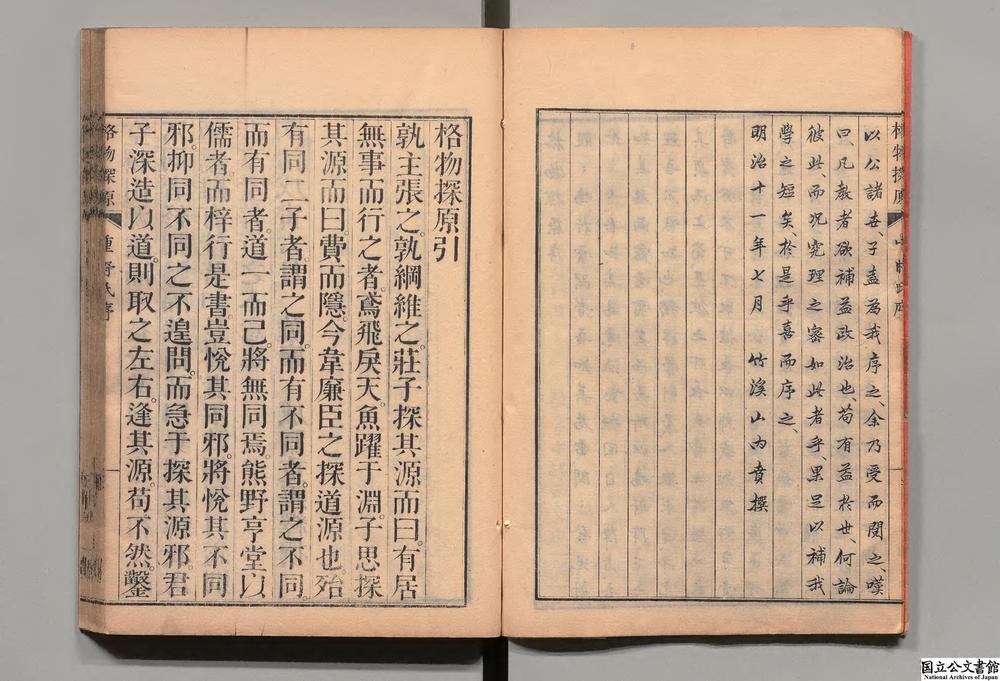 以公諸世子盍為我序之、余乃受而閱之、嘆
曰、凡教者欲補益政治也、苟有益於世、何論
彼此、而况究理之密如此者乎、果足以補我
學之短矣、於是乎喜而序之、
明治十一年七月　竹溪山内賁撰
格物探原引
孰主張之。孰綱維之。莊子探其源而曰。有居
無事而行之者。鳶飛戾天。魚躍于淵。子思探
其源而曰。費而隱。今韋廉臣之探道源也。殆
有同二子者。謂之同。而有不同者。謂之不同。
而有同者。道一而已。將無同焉。熊野亨堂以
儒者。而梓行是書。豈悅其同邪。將悅其不同
邪。抑同不同之不遑問。而急于探其源邪。君
子深造以道。則取之左右。逢其源。苟不然。鑿
格物探原
重野氏序
一
国立公文書館
National Archives of Japan